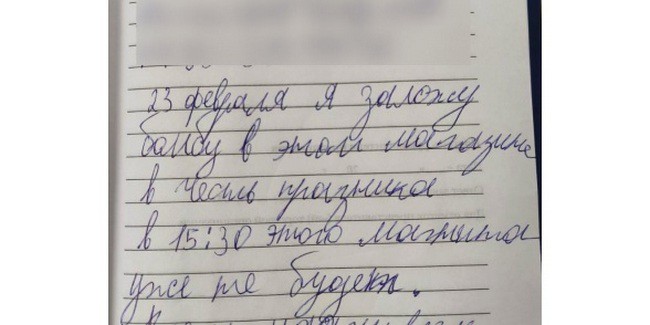 23 февраля я заложу
бомбу в этом магазине
в честь празника
в 15:30 этого Магнита
уже не будет.